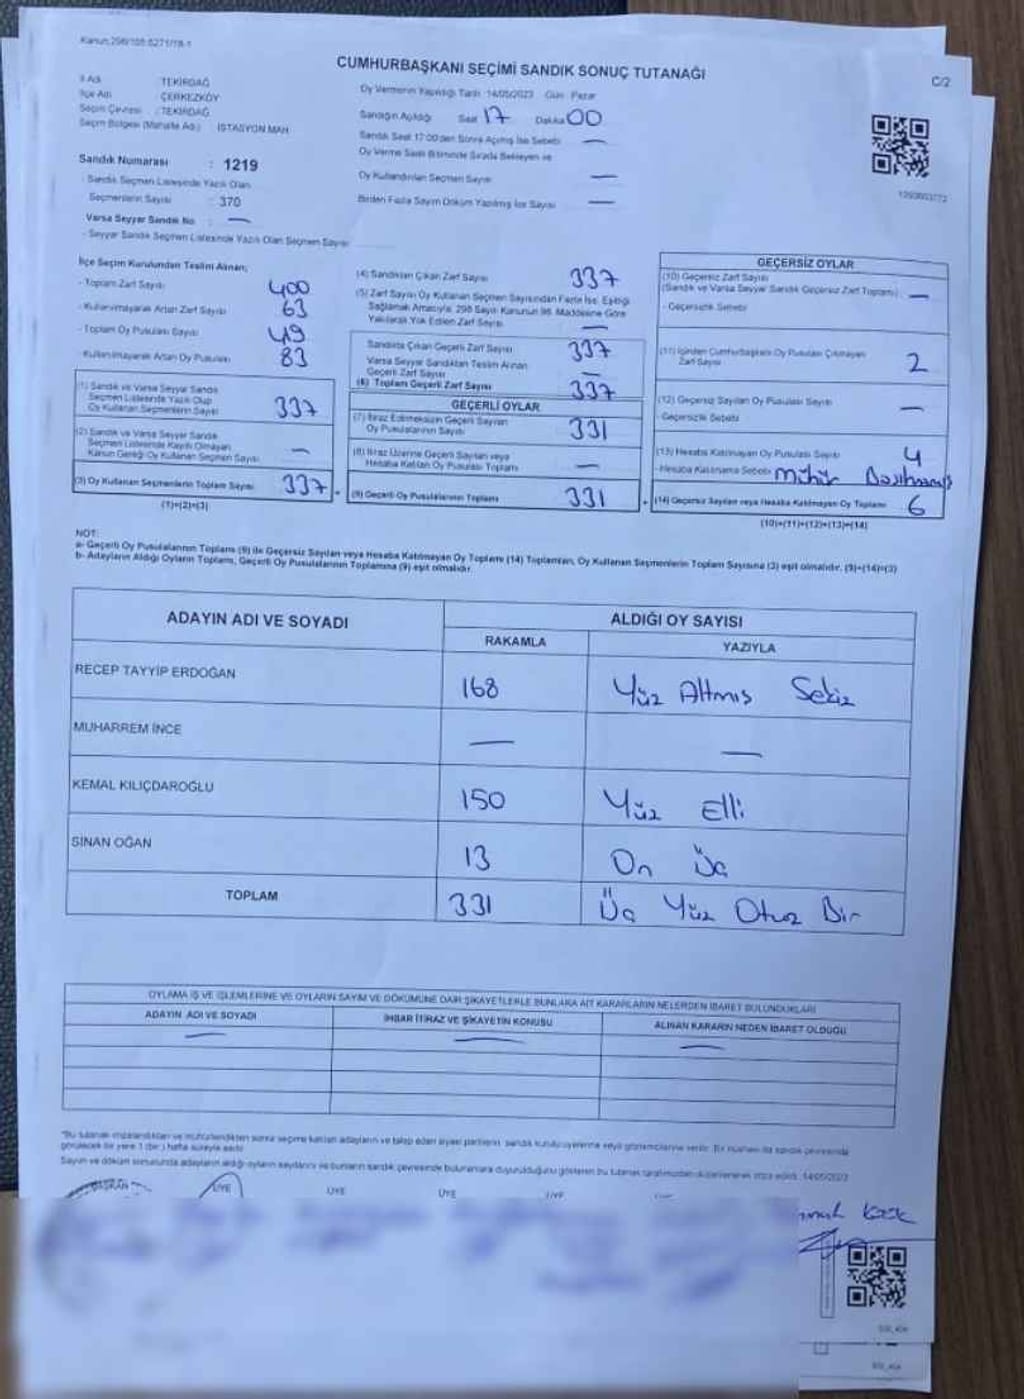 Kanun:298/105 6271/18-1
CUMHURBAŞKANI SEÇİMİ SANDIK SONUÇ TUTANAĞI
C/2
İl Adı : TEKİRDAĞ
İlçe Adı : ÇERKEZKÖY
Seçim Çevresi : TEKİRDAĞ
Seçim Bölgesi (Mahalle Adı) : İSTASYON MAH
Sandık Numarası : 1219
- Sandık Seçmen Listesinde Yazılı Olan
Seçmenlerin Sayısı : 370
Varsa Seyyar Sandık No : —
- Seyyar Sandık Seçmen Listesinde Yazılı Olan Seçmen Sayısı
Oy Vermenin Yapıldığı Tarih : 14/05/2023 Gün : Pazar
Sandığın Açıldığı Saat 17 Dakika 00
Sandık Saat 17:00'den Sonra Açılmış İse Sebebi —
Oy Verme Saati Bitiminde Sırada Bekleyen ve
Oy Kullandırılan Seçmen Sayısı —
Birden Fazla Sayım Döküm Yapılmış İse Sayısı —
İlçe Seçim Kurulundan Teslim Alınan;
- Toplam Zarf Sayısı 400
- Kullanılmayarak Artan Zarf Sayısı 63
- Toplam Oy Pusulası Sayısı
- Kullanılmayarak Artan Oy Pusulası 83
(1) Sandık ve Varsa Seyyar Sandık
Seçmen Listesinde Yazılı Olup
Oy Kullanan Seçmenlerin Sayısı 337
(2) Sandık ve Varsa Seyyar Sandık
Seçmen Listesinde Kayıtlı Olmayan
Kanun Gereği Oy Kullanan Seçmen Sayısı —
(3) Oy Kullanan Seçmenlerin Toplam Sayısı 337
(1)+(2)=(3)
(4) Sandıktan Çıkan Zarf Sayısı 337
(5) Zarf Sayısı Oy Kullanan Seçmen Sayısından Fazla İse, Eşitliği
Sağlamak Amacıyla, 298 Sayılı Kanunun 98. Maddesine Göre
Yakılarak Yok Edilen Zarf Sayısı —
Sandıkta Çıkan Geçerli Zarf Sayısı 337
Varsa Seyyar Sandıktan Teslim Alınan
Geçerli Zarf Sayısı —
(6) Toplam Geçerli Zarf Sayısı 337
GEÇERLİ OYLAR
(7) İtiraz Edilmeksizin Geçerli Sayılan
Oy Pusulalarının Sayısı 331
(8) İtiraz Üzerine Geçerli Sayılan veya
Hesaba Katılan Oy Pusulası Toplamı —
(9) Geçerli Oy Pusulalarının Toplamı 331
GEÇERSİZ OYLAR
(10) Geçersiz Zarf Sayısı
(Sandık ve Varsa Seyyar Sandık Geçersiz Zarf Toplamı) —
- Geçersizlik Sebebi
(11) İçinden Cumhurbaşkanı Oy Pusulası Çıkmayan
Zarf Sayısı 2
(12) Geçersiz Sayılan Oy Pusulası Sayısı —
- Geçersizlik Sebebi
(13) Hesaba Katılmayan Oy Pusulası Sayısı 4
- Hesaba Katılmama Sebebi mühür Basılmamış
(14) Geçersiz Sayılan veya Hesaba Katılmayan Oy Toplamı 6
(10)+(11)+(12)+(13)=(14)
NOT:
a- Geçerli Oy Pusulalarının Toplamı (9) ile Geçersiz Sayılan veya Hesaba Katılmayan Oy Toplamı (14) Toplamları, Oy Kullanan Seçmenlerin Toplam Sayısına (3) eşit olmalıdır. (9)+(14)=(3)
b- Adayların Aldığı Oyların Toplamı, Geçerli Oy Pusulalarının Toplamına (9) eşit olmalıdır.
ADAYIN ADI VE SOYADI
ALDIĞI OY SAYISI
RAKAMLA YAZIYLA
RECEP TAYYİP ERDOĞAN 168 Yüz Altmış Sekiz
MUHARREM İNCE — —
KEMAL KILIÇDAROĞLU 150 Yüz Elli
SİNAN OĞAN 13 On Üç
TOPLAM 331 Üç Yüz Otuz Bir
OYLAMA İŞ VE İŞLEMLERİNE VE OYLARIN SAYIM VE DÖKÜMÜNE DAİR ŞİKAYETLERLE BUNLARA AİT KARARLARIN NELERDEN İBARET BULUNDUKLARI
ADAYIN ADI VE SOYADI İHBAR İTİRAZ VE ŞİKAYETİN KONUSU ALINAN KARARIN NEDEN İBARET OLDUĞU
— — —
*Bu tutanak imzalandıktan ve mühürlendikten sonra seçime katılan adayların ve talep eden siyasi partilerin sandık kurulu üyelerine veya gözlemcilerine verilir. Bir nüshası da sandık çevresinde
görülecek bir yere 1 (bir) hafta süreyle asılır.
Sayım ve döküm sonucunda adayların aldığı oyların sayılarını ve bunların sandık çevresinde bulunanlara duyurulduğunu gösteren bu tutanak tarafımızdan düzenlenerek imza edildi. 14/05/2023
BAŞKAN ÜYE ÜYE ÜYE ÜYE